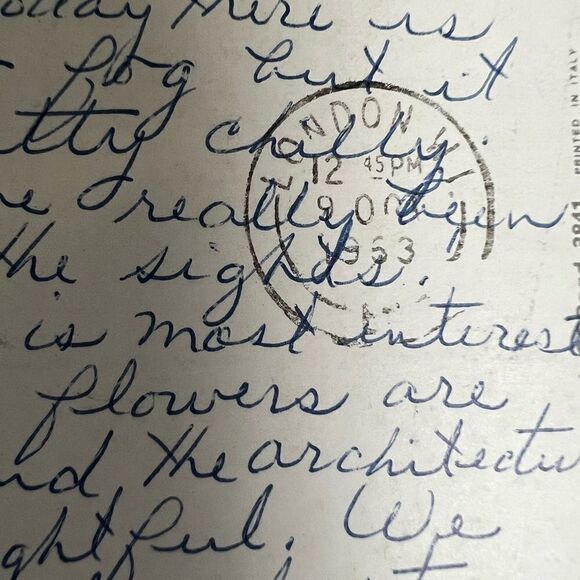 today there is
fog but it
chilly.
really been
the sights.
is most interest
flowers are
and the architectu
ghtful. We
LONDON
12 45 PM
9 OCT
1953
PRINTED IN ITALY